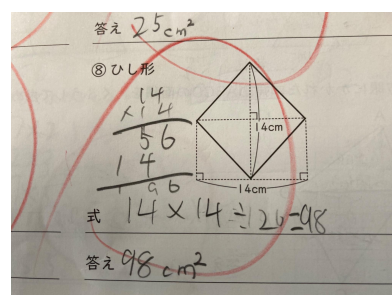 答え 25cm²
⑧ひし形
14
×14
56
14
196
14cm
14cm
式 14×14÷2=98
答え 98cm²